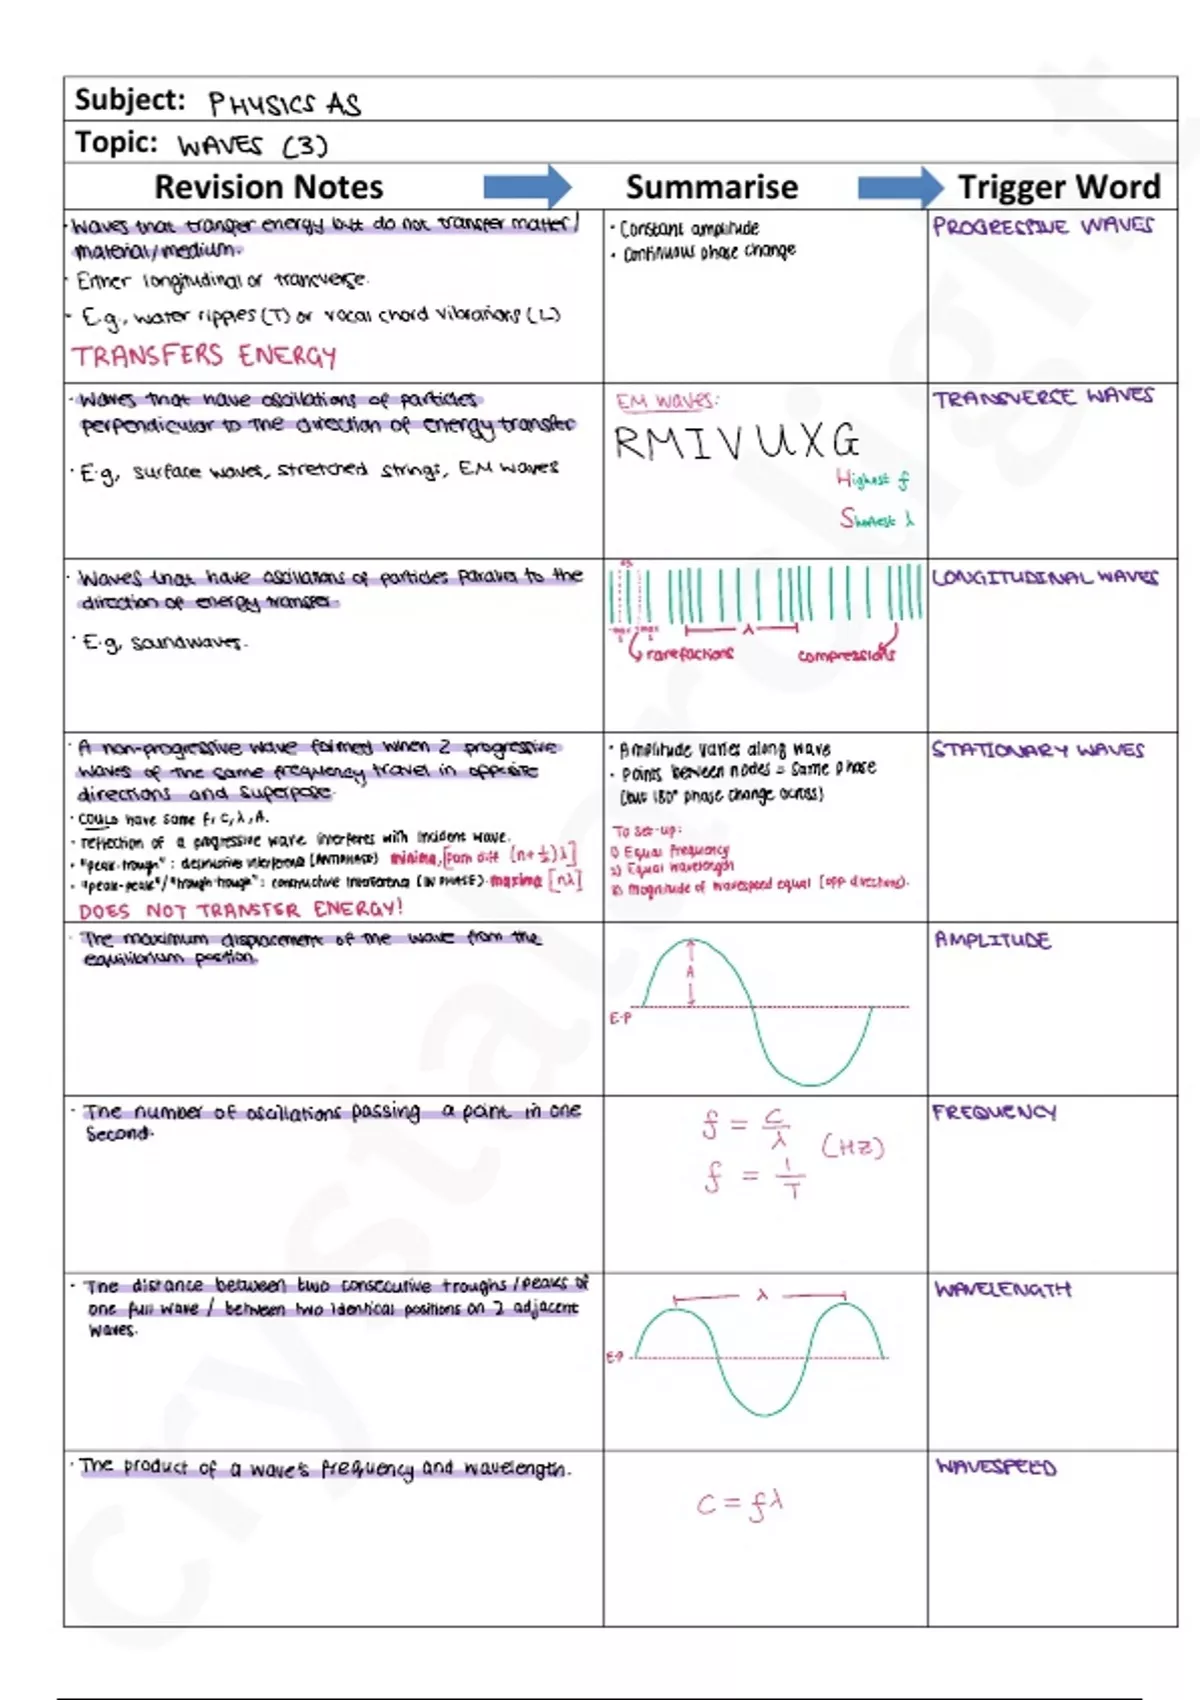 Subject: PHYSICS AS
Topic: WAVES (3)
Revision Notes
Summarise
Trigger Word
· Waves that transfer energy but do not transfer matter /
material/medium.
· Either longitudinal or trancverse.
· E.g., water ripples (T) or vocal chord vibrations (L)
TRANSFERS ENERGY
· Constant amplitude
· Continuous phase change
PROGRESSIVE WAVES
· Waves that have oscillations of particles
perpendicular to the direction of energy transfer
· E.g, surface waves, stretched strings, EM waves
EM waves:
RMIVUXG
Highest f
Shortest λ
TRANSVERSE WAVES
· Waves that have oscillations of particles parallel to the
direction of energy transfer
· E.g, soundwaves.
λ
rarefactions
compressions
LONGITUDINAL WAVES
· A non-progressive wave formed when 2 progressive
waves of the same frequency travel in opposite
directions and superpose.
· COULD have same f, c, λ, A.
· reflection of a progressive wave interferes with incident wave.
· "peak-trough": destructive interference (ANTIPHASE) minima, [path diff (n+½)λ]
· "peak-peak"/"trough-trough": constructive interference (IN PHASE) · maxima [nλ]
DOES NOT TRANSFER ENERGY!
· Amplitude varies along wave
· Points between nodes = same phase
(but 180° phase change across)
To set-up:
1) Equal frequency
2) Equal wavelength
3) Magnitude of wavespeed equal (opp directions).
STATIONARY WAVES
· The maximum displacement of the wave from the
equilibrium position.
A
E.P
AMPLITUDE
· The number of oscillations passing a point in one
second.
f = c/λ
(HZ)
f = 1/T
FREQUENCY
· The distance between two consecutive troughs /peaks of
one full wave / between two identical positions on 2 adjacent
waves.
λ
E.P
WAVELENGTH
· The product of a wave's frequency and wavelength.
C = fλ
WAVESPEED